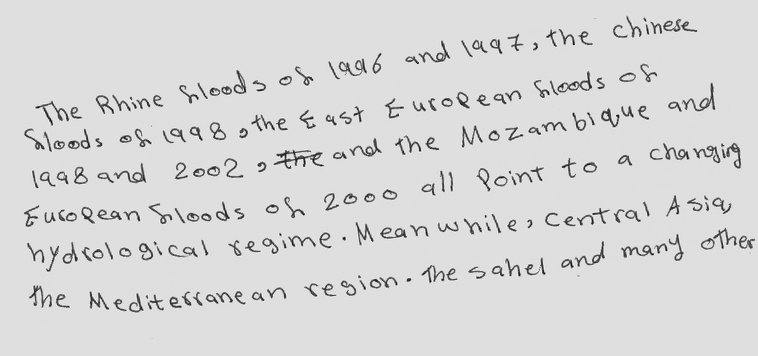 The Rhine floods of 1996 and 1997, the chinese
floods of 1998, the East European floods of
1998 and 2002, the and the Mozambique and
European floods of 2000 all Point to a changing
hydrological regime. Meanwhile, central Asia,
the Mediterranean region. The sahel and many other